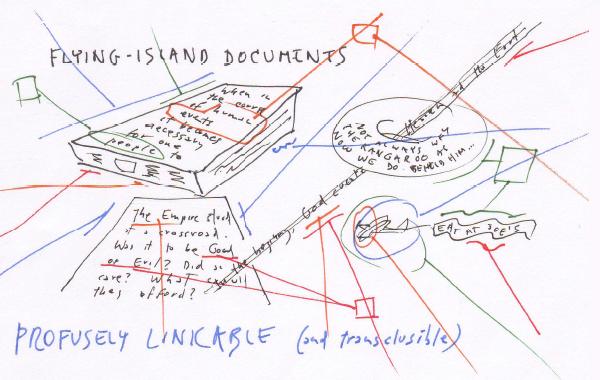 FLYING-ISLAND DOCUMENTS
When in
the course
of human
events
it becomes
necessary
for one
people to
Heaven and its Errl
NOT ALWAYS WAS
NOW KANGAROO AS
WE DO. BEHELD HIM...
In the beginning, God create
EAT AT JOE'S
The Empire stood
at a crossroad.
Was it to be Good
or Evil? Did
care? What
they afford?
PROFUSELY LINKABLE (and transclusible)